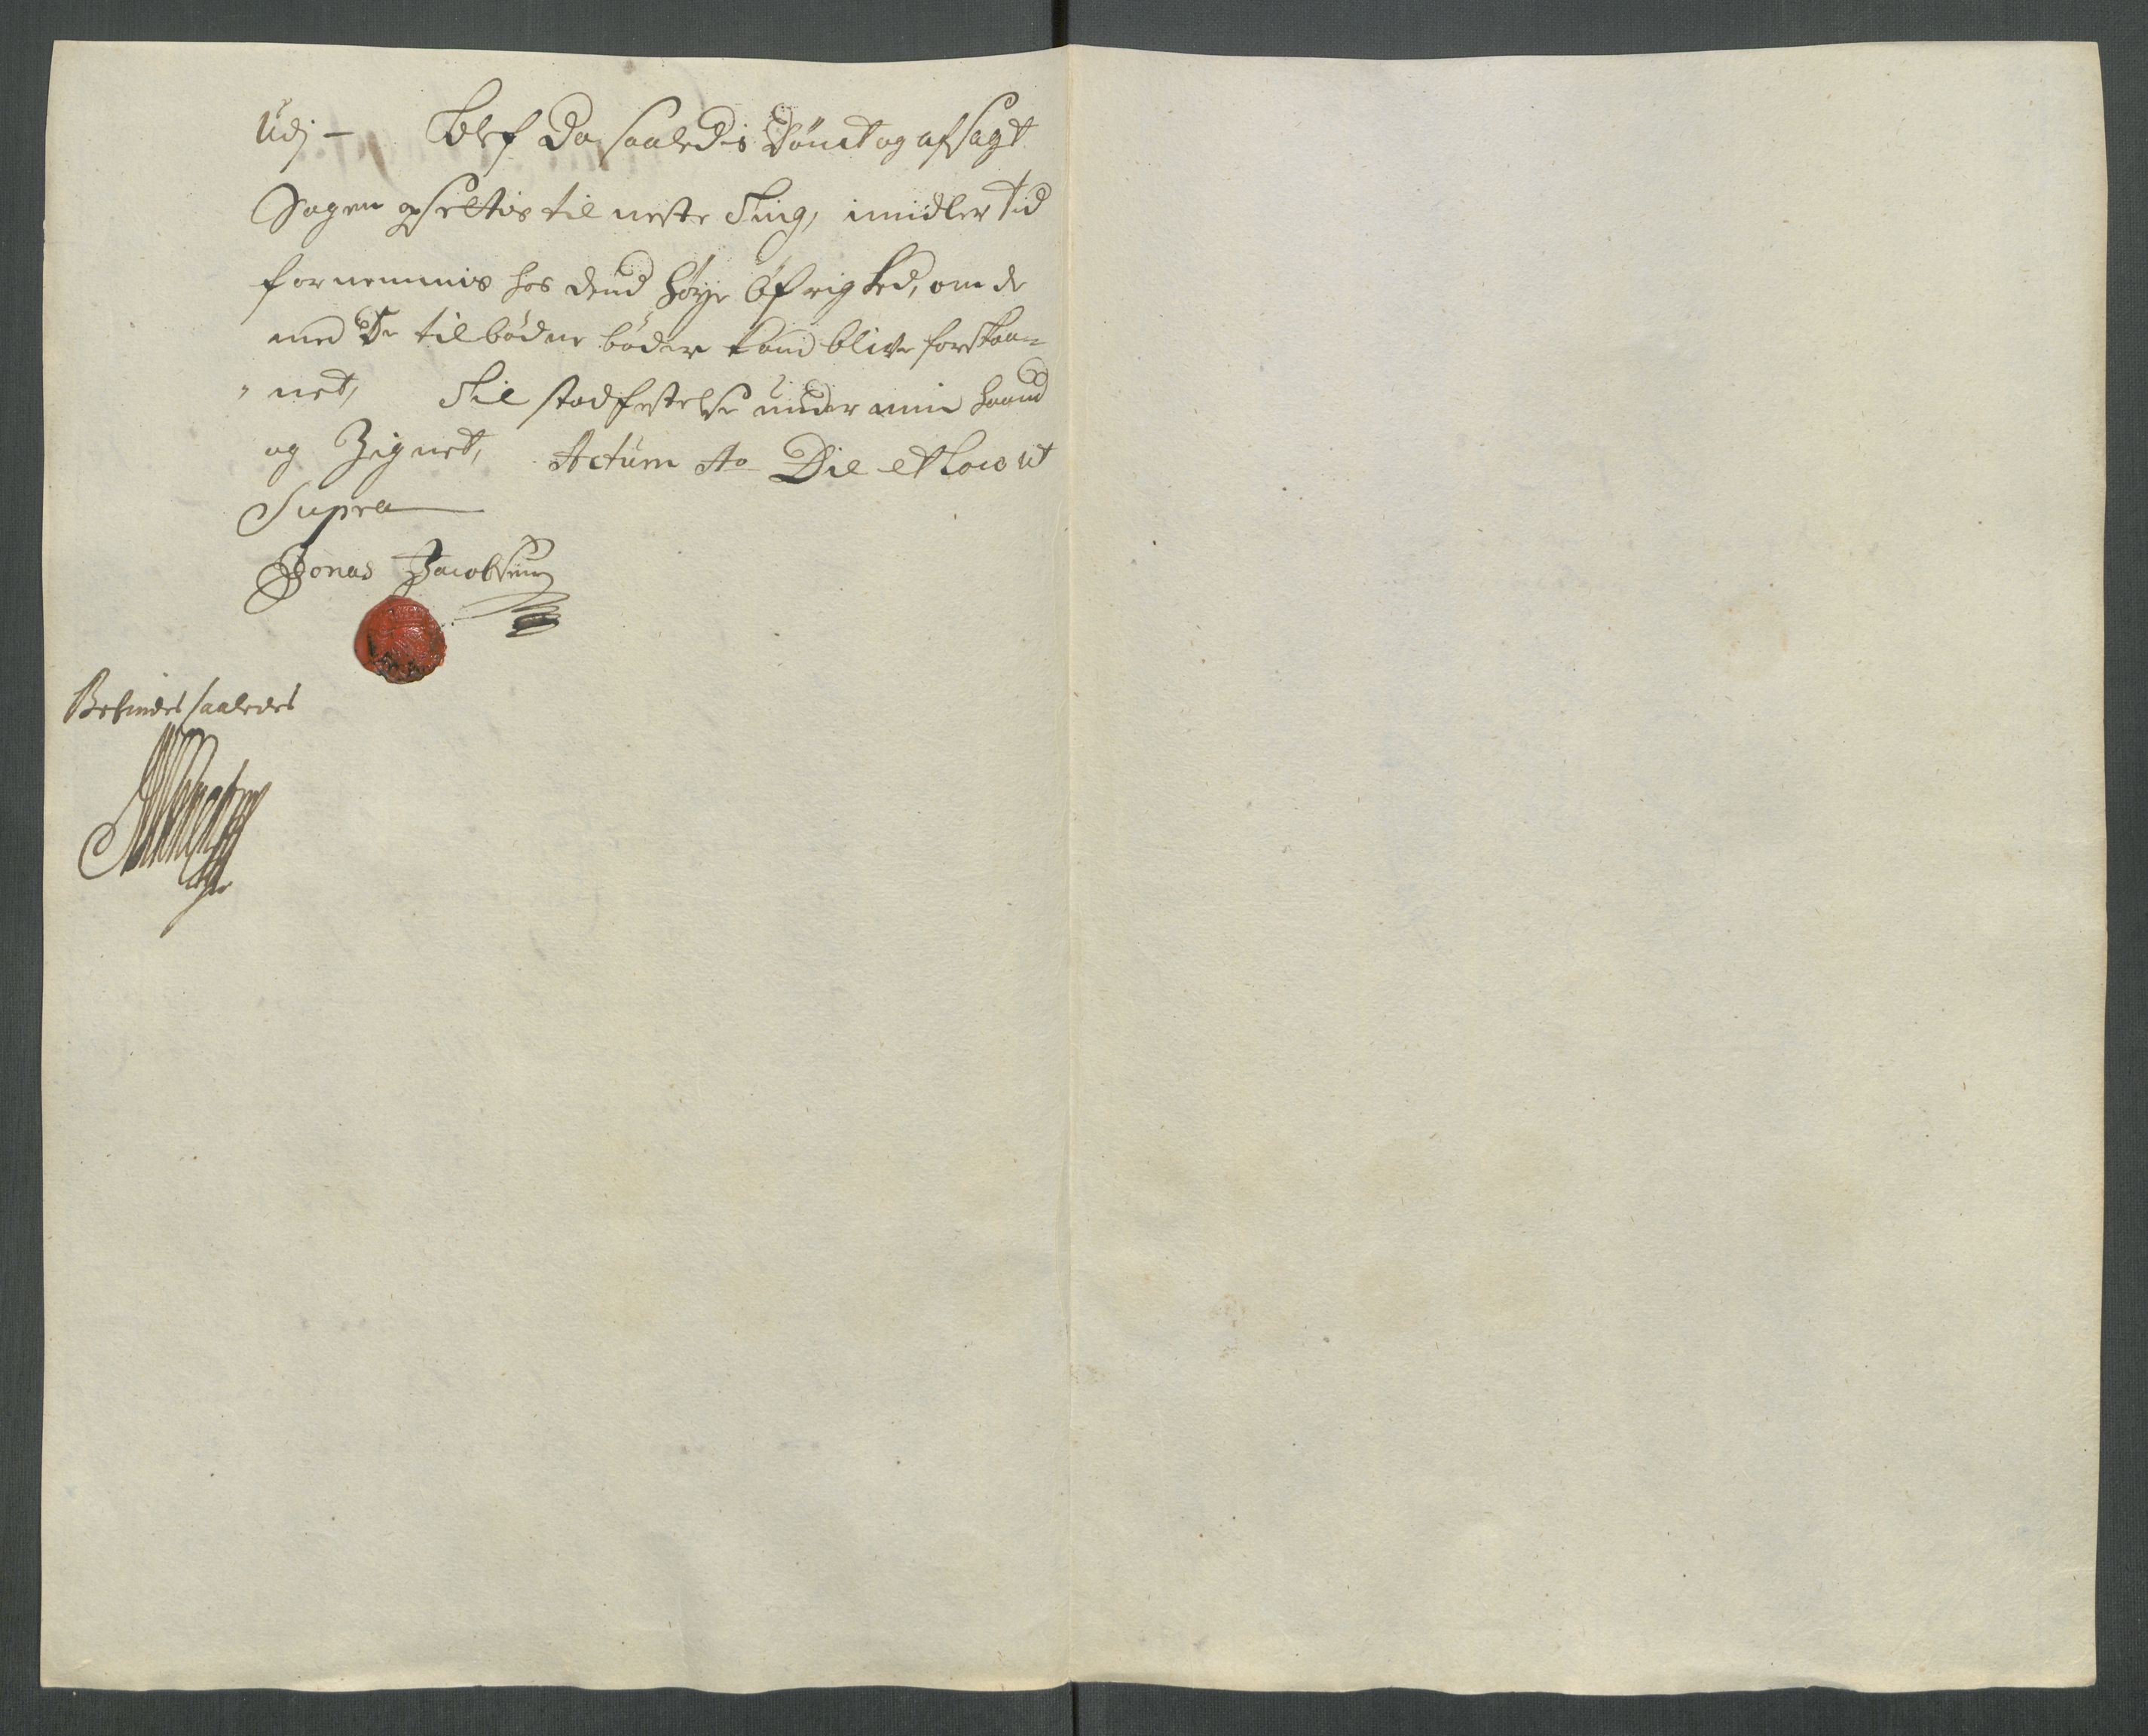 Udj – Blef da saaledis Dömt og afsagt
Sagen opsettis til neste Ting, imidler tid
fornemmis hos dend høye Öfrighed, om de
med De tilbödne böder kand blive forskaa=
"net, Til stadfestelse under min haand
og Zignet, Actum Ao Die et Loco ut
Supra
Jonas Jacobsen
Befindes saaledes